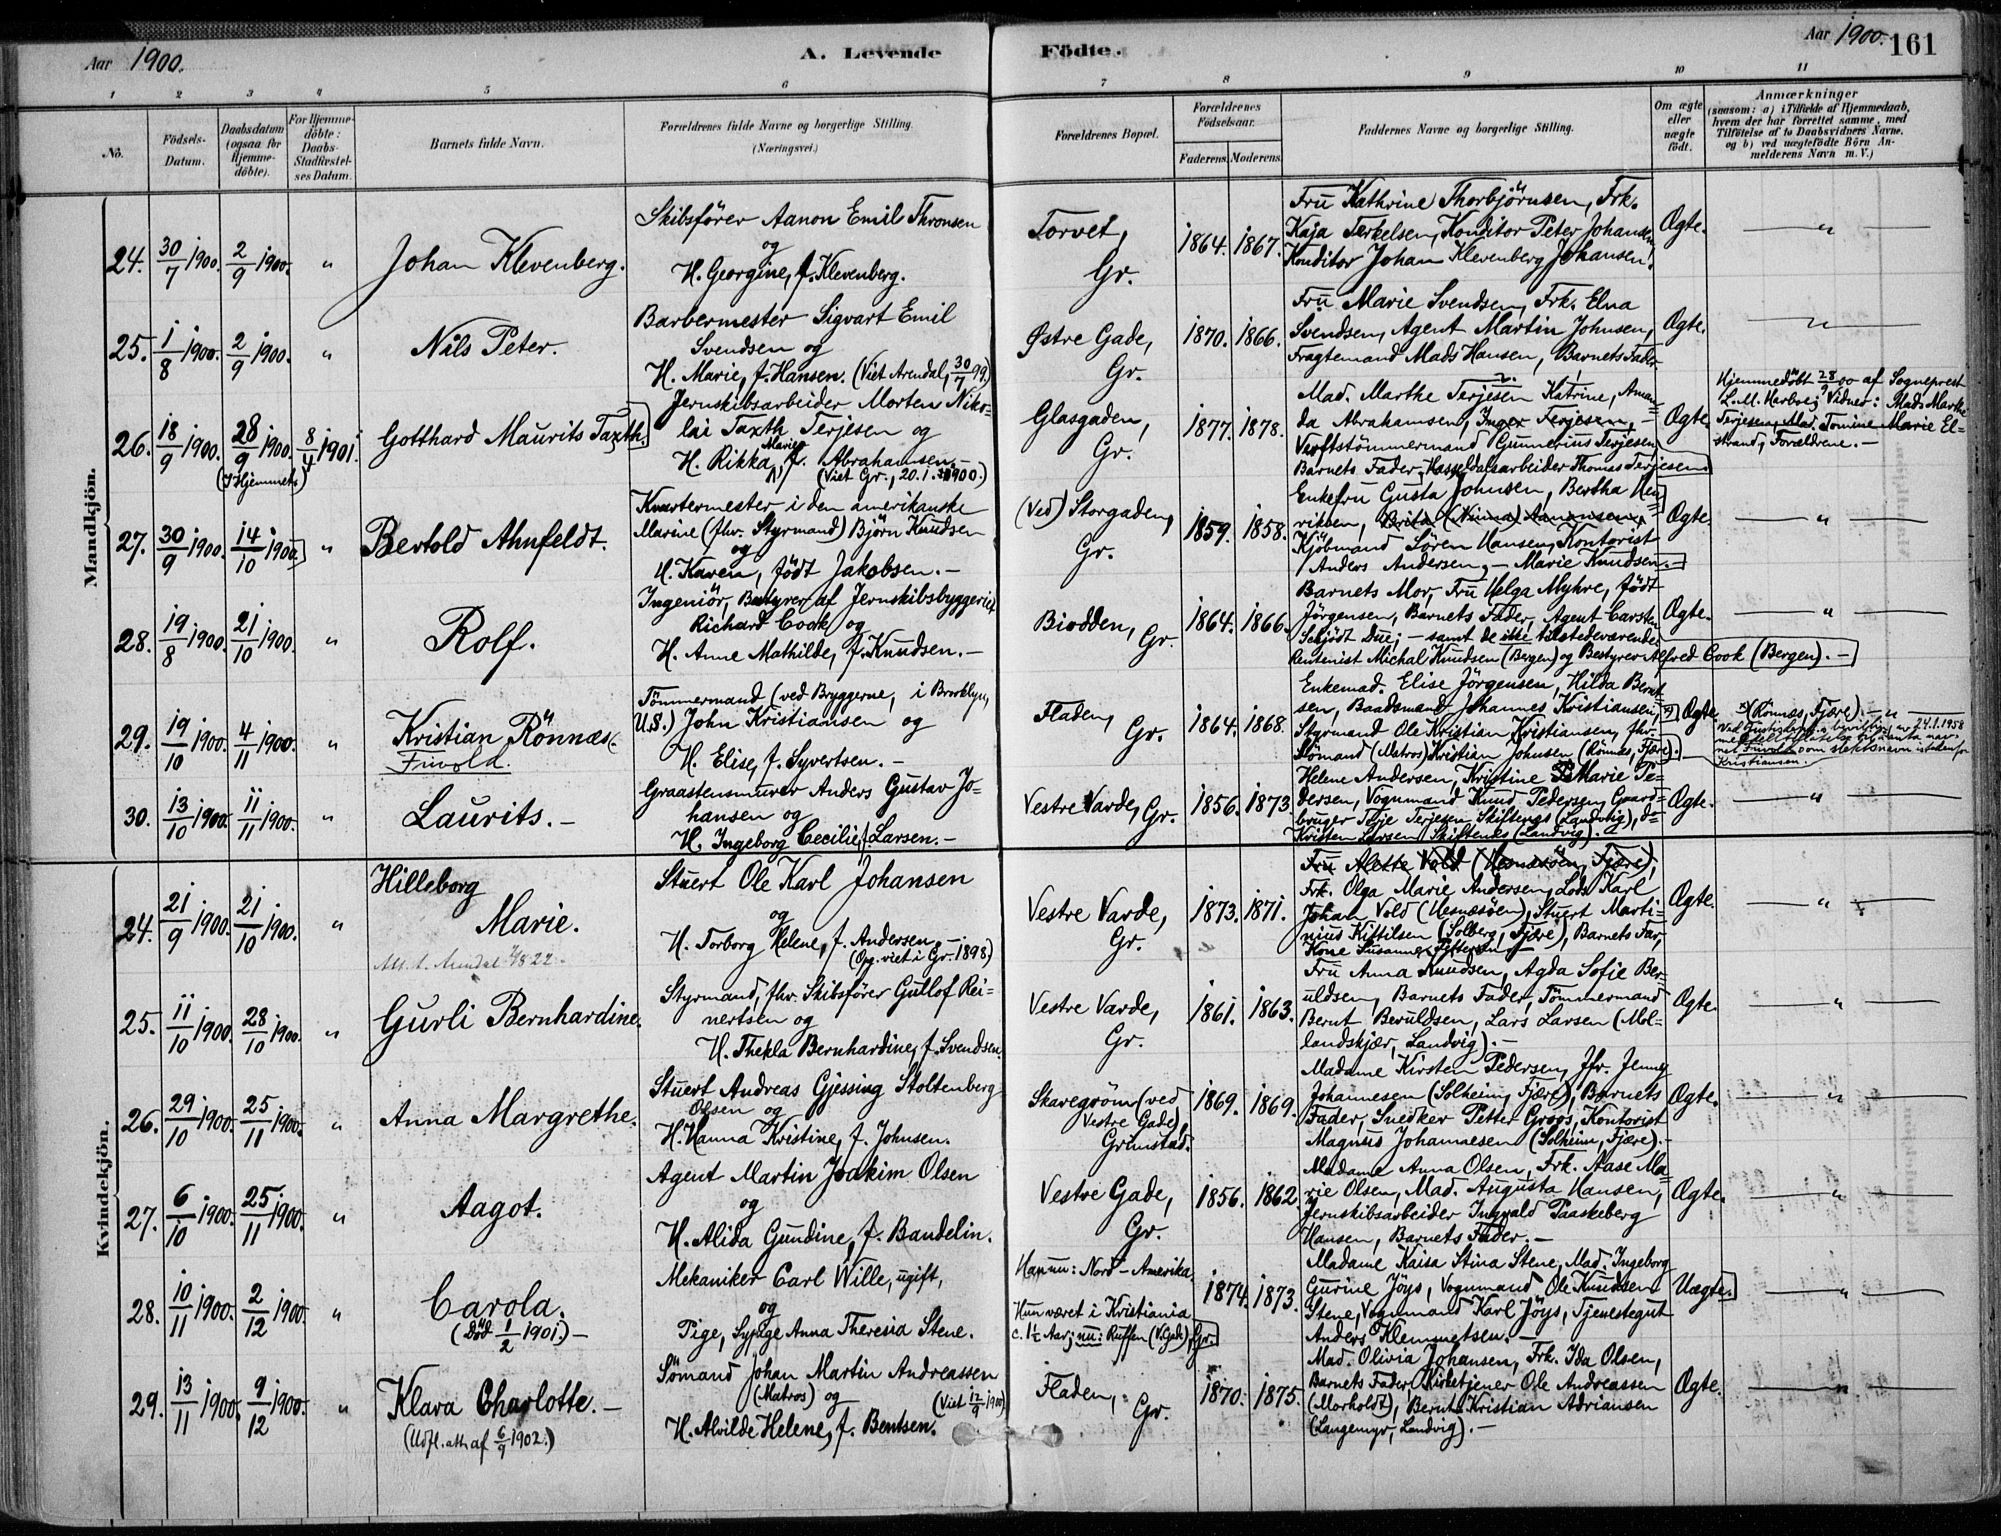 Aar 1900.
A. Levende Födte.
Aar 1900. 161
1 2 3 4 5 6 7 8 9 10 11
No.
Födsels-Datum.
Daabsdatum (ogsaa for Hjemmedöbte).
For Hjemmedöbte: Daabs-Stadfæstelses Datum.
Barnets fulde Navn.
Forældrenes fulde Navne og borgerlige Stilling.
(Næringsvei.)
Forældrenes Bopæl.
Forældrenes Födselsaar.
Faderens. Moderens.
Faddernes Navne og borgerlige Stilling.
Om ægte eller uægte födt.
Anmærkninger
(saasom: a) i Tilfælde af Hjemmedaab, hvem der har forrettet samme, med Tilföielse af to Daabsvidners Navne. og b) ved uægtefödte Börn Anmelderens Navn m. V.)
Mandkjön.
24. 30/7 1900. 2/9 1900. "
Johan Klevenberg.
Skibsförer Aanon Emil Thronsen
og
H. Georgine, f. Klevenberg.
Torvet,
Gr.
1864. 1867.
Fru Kathrine Thorbjörnsen, Frk.
Kaja Terkelsen, Konditor Peter Johansen,
Konditor Johan Klevenberg Johansen.
Ægte. "
25. 1/8 1900. 2/9 1900. "
Nils Peter.
Barbermester Sigvart Emil
Svendsen og
H. Marie, f. Hansen. (Viet Arendal, 30/7 99.)
Østre Gade,
Gr.
1870. 1866.
Fru Marie Svendsen, Frk. Elna
Svendsen, Agent Martin Johnsen,
Fragtemand Mads Hansen, Barnets Fader.
Ægte. "
26. 18/9 1900. 28/9 1900. (I Hjemmet) 8/4 1901.
Gotthard Maurits Taxth.
Jernskibsarbeider Morten Niko-
lai Taxth Terjesen og
H. Rikka Marie, f. Abrahamsen.
(Viet Gr., 20.1.1900.)
Glasgaden,
Gr.
1877. 1878.
Mad. Marthe Terjesen, Katrine, Aman-
da Abrahamsen, Inger Terjesen, -
Verftstömmermand Gunnerius Terjesen,
Barnets Fader, Hasseldalsarbeider Thomas Terjesen
Ægte.
Hjemmedöbt 28/9 00 af Sogneprest
L. M. Harboe; Vidner: Mad. Marthe
Terjesen, Mad. Tomine Marie El-
strand, Forældrene. -
27. 30/9 1900. 14/10 1900. "
Bertold Ahnfeldt.
Kvartermester i den amerikanske
Marine (fhv. Styrmand) Björn Knudsen
og
H. Karen, födt Jakobsen. -
(Ved) Storgaden,
Gr.
1859. 1858.
Enkefru Gusta Johnsen, Bertha Hen-
riksen, Brita (Ninna) Aanonsen,
Kjöbmand Sören Hansen, Kontorist
Anders Andersen, - Marie Knudsen. -
Ægte. "
28. 19/8 1900. 21/10 1900. "
Rolf.
Ingeniör, Bestyrer af Jernskibsbyggeriet
Richard Cook og
H. Anne Mathilde, f. Knudsen. -
Biodden, Gr.
1864. 1866.
Barnets Mor, Fru Helga Myhre, födt
Jörgensen, Barnets Fader, Agent Carsten
Schjödt Due; - samt de ikke tilstedeværende
Rentenist Michal Knudsen (Bergen) og Bestyrer Alfred Cook (Bergen). -
Ægte. "
29. 19/10 1900. 4/11 1900. "
Kristian Rönnæs.
Fivold.
Tömmermand (ved Bryggerne, i Brooklyn,
U.S.) John Kristiansen og
H. Elise, f. Syvertsen. -
Fladen,
Gr.
1864. 1868.
Enkemad. Elise Jörgensen, Hilda Bernt-
sen, Baadsmand Johannes Kristiansen,
Styrmand Ole Kristian Kristiansen, fhv.
Sömand (Matros) Kristian Johnsen (Rönnes, Fjære).
Ægte.
(Rönnes, Fjære). - "
24.1.1958
Kristiansen.
30. 13/10 1900. 11/11 1900. "
Laurits. -
Graastensmurer Anders Gustav Jo-
hansen og
H. Ingeborg Cecilie, f. Larsen. -
Vestre Varde, Gr.
1856. 1873
Helene Andersen, Kristine Marie Pe-
dersen, Vognmand Knud Pedersen, Gaard-
bruger Terje Terjesen, Skiftenes (Landvig), do
Kristen Larsen Skiftenes (Landvig). -
Ægte. "
Kvindekjön.
24. 21/9 1900. 21/10 1900. "
Hilleborg
Marie.
Stuert Ole Karl Johansen
og
H. Torborg Helene, f. Andersen. -
(Og. viet i Gr. 1898)
Vestre Varde,
Gr.
1873. 1871.
Fru Alette Vold (Hesnæsöen, Fjære),
Frk. Olga Marie Andersen, Lods Karl
Johan Vold (Hesnæsöen), Stuert Marti-
nius Kittilsen (Solberg, Fjære), Barnets Far,
Kone Susanne Pettersen. -
Ægte. "
25. 11/10 1900. 28/10 1900. "
Gurli Bernhardine.
Styrmand, fhv. Skibsförer Gullof Rei-
nertsen og
H. Thekla Bernhardine, f. Svendsen.
Vestre Varde,
Gr.
1861. 1863.
Fru Anna Knudsen, Agda Sofie Ber-
uldsen, Barnets Fader, Tömmermand
Bernt Beruldsen, Lars Larsen (Mol-
landskjær, Landvig). -
Ægte. "
26. 29/10 1900. 25/11 1900. "
Anna Margrethe.
Stuert Andreas Gjessing Stoltenberg
Olsen og
H. Hanna Kristine, f. Johnsen.
Skaregröm (ved
Vestre Gade),
Grimstad.
1869. 1869.
Madame Kirsten Pedersen, Jfr. Jenny
Johannesen (Solheim, Fjære), Barnets
Fader, Snedker Petter Groos, Kontorist
Magnus Johannesen (Solheim, Fjære). -
Ægte. "
27. 6/10 1900. 25/11 1900. "
Aagot.
Agent Martin Joakim Olsen
og
H. Alida Gundine, f. Bandelin.
Vestre Gade,
Gr.
1856. 1862.
Madame Anna Olsen, Frk. Aase Ma-
rie Olsen, Mad. Augusta Hansen,
Jernskibsarbeider Ingvald Paaskeberg
Hansen, Barnets Fader. -
Ægte. "
28. 10/11 1900. 2/12 1900. "
Carola.
(Död 1/2 1901.) -
Mekaniker Carl Wille, ugift,
og
Pige, Sypige Anna Theresia Stene.
Han nu: Nord-Amerika.
Hun været i Kristiania
c. 1½ Aar; nu: Ruffen (V. Gade), Gr.
1874. 1873.
Madame Kaisa Stina Stene, Mad. Ingeborg
Gurine Jöys, Vognmand Ole Knudsen
Stene, Vognmand Karl Jöys, Tjenestegut
Anders Klemmetsen. -
Uægte. "
29. 13/11 1900. 9/12 1900. "
Klara Charlotte. -
(Udfl. att. af 6/9 1902.)
Sömand Johan Martin Andreassen
(Matros) og (Viet 12/9 1900)
H. Alvilde Helene, f. Bentsen.
Fladen,
Gr.
1870. 1875.
Mad. Olivia Johansen, Frk. Ida Olsen,
Barnets Fader, Kirketjener Ole Andreassen
(Morholdt), Bernt Kristian Adriansen
(Langemyr, Landvig). -
Ægte. "